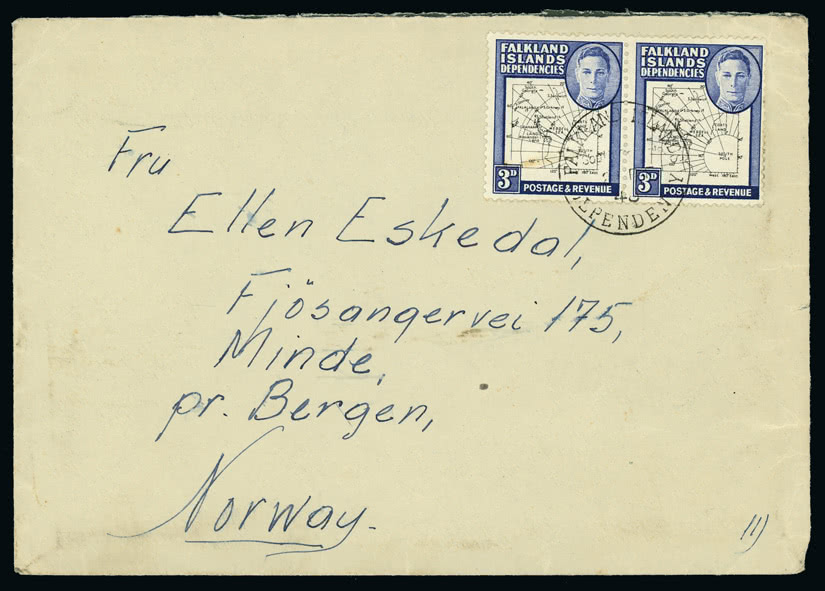 FALKLAND ISLANDS DEPENDENCIES
3D
POSTAGE & REVENUE
FALKLAND ISLANDS DEPENDENCIES
SOUTH POLE
3D
POSTAGE & REVENUE
FALKLAND ISLANDS
Fru
Ellen Eskedal,
Fjösangervei 175,
Minde,
pr. Bergen,
Norway.
11)